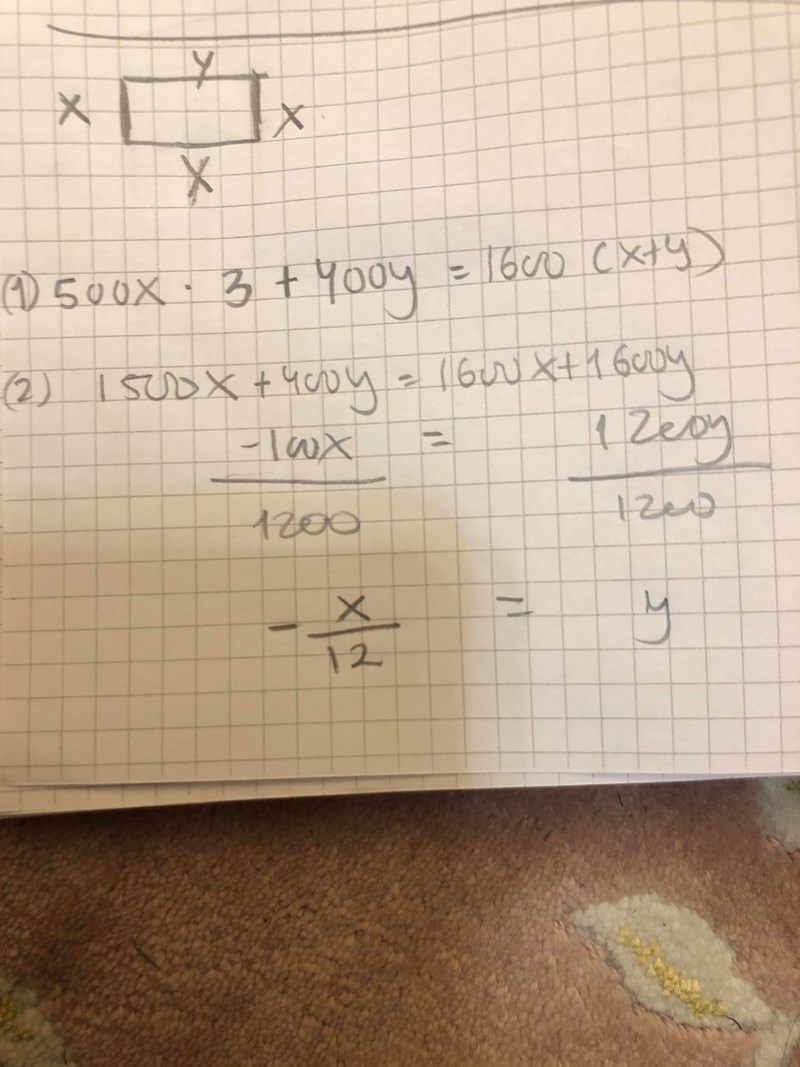 y
x x
x
(1) 500x · 3 + 400y = 1600 (x+y)
(2) 1500x + 400y = 1600x + 1600y
-100x = 1200y
1200 1200
- x/12 = y